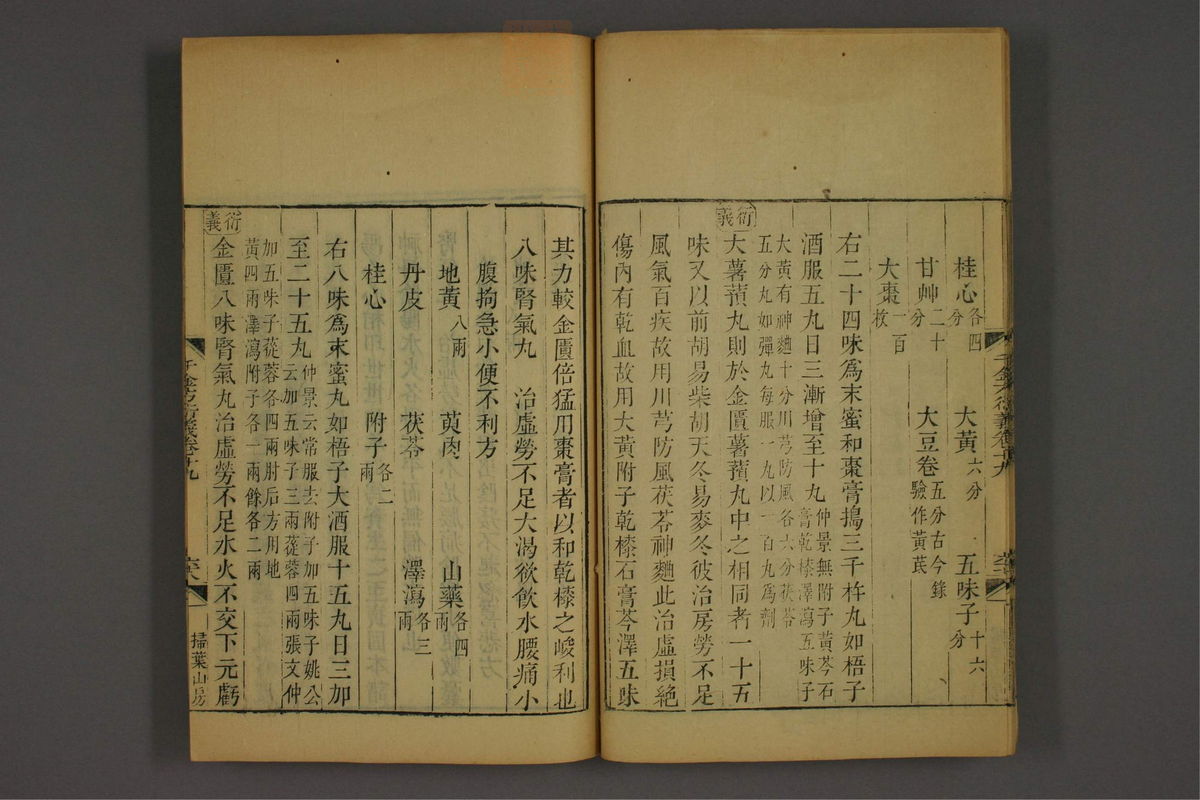 桂心各四分　大黃六分　五味子十六分
甘艸二十分　大豆卷五分古今錄驗作黃茋
大棗一百枚
右二十四味爲末蜜和棗膏搗三千杵丸如梧子
酒服五丸日三漸增至十丸仲景無附子黃芩石膏乾漆澤瀉五味子
大黃有神麯十分川芎防風各六分茯苓五分丸如彈丸每服一丸以一百丸爲劑
衍義
大薯蕷丸則於金匱薯蕷丸中之相同者一十五
味又以前胡易柴胡天冬易麥冬彼治房勞不足
風氣百疾故用川芎防風茯苓神麯此治虛損絕
傷內有乾血故用大黃附子乾漆石膏芩澤五味
千金方衍義卷十九
其力較金匱倍猛用棗膏者以和乾漆之峻利也
八味腎氣丸　治虛勞不足大渴欲飲水腰痛小
腹拘急小便不利方
地黃八兩　萸肉　山藥各四兩
丹皮　茯苓　澤瀉各三兩
桂心　附子各二兩
右八味爲末蜜丸如梧子大酒服十五丸日三加
至二十五丸仲景云常服去附子加五味子姚公云加五味子三兩蓯蓉四兩張文仲
加五味子蓯蓉各四兩肘后方用地黃四兩澤瀉附子各一兩餘各二兩
衍義
金匱八味腎氣丸治虛勞不足水火不交下元虧
千金方衍義卷十九
掃葉山房